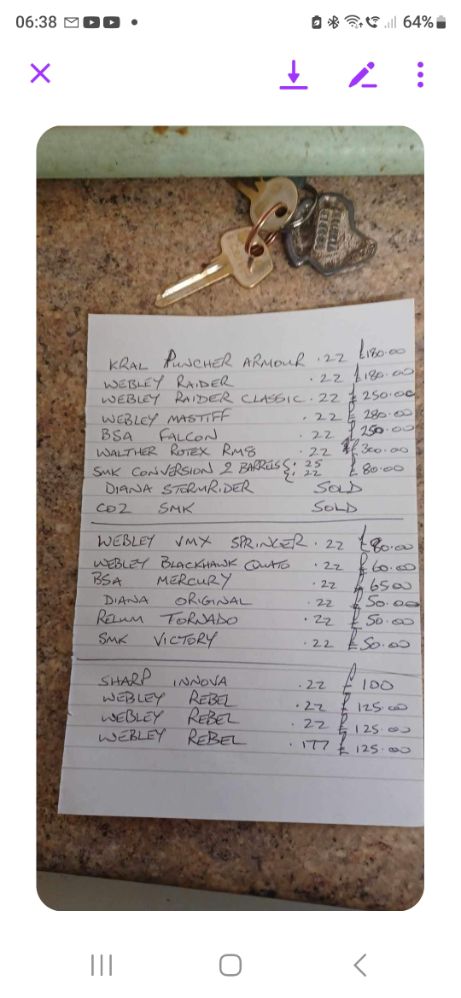 06:38
64%
KRAL PUNCHER ARMOUR .22 £180.00
WEBLEY RAIDER .22 £180.00
WEBLEY RAIDER CLASSIC .22 £250.00
WEBLEY MASTIFF .22 £280.00
BSA FALCON .22 £250.00
WALTHER ROTEX RM8 .22 £300.00
SMK CONVERSION 2 BARRELS {.25 .22 £80.00
DIANA STORMRIDER SOLD
CO2 SMK SOLD
WEBLEY VMX SPRINGER .22 £80.00
WEBLEY BLACKHAWK .22 £60.00
BSA MERCURY .22 £6500
DIANA ORIGINAL .22 £50.00
RELUM TORNADO .22 £50.00
SMK VICTORY .22 £50.00
SHARP INNOVA .22 £100
WEBLEY REBEL .22 £125.00
WEBLEY REBEL .22 £125.00
WEBLEY REBEL .177 £125.00